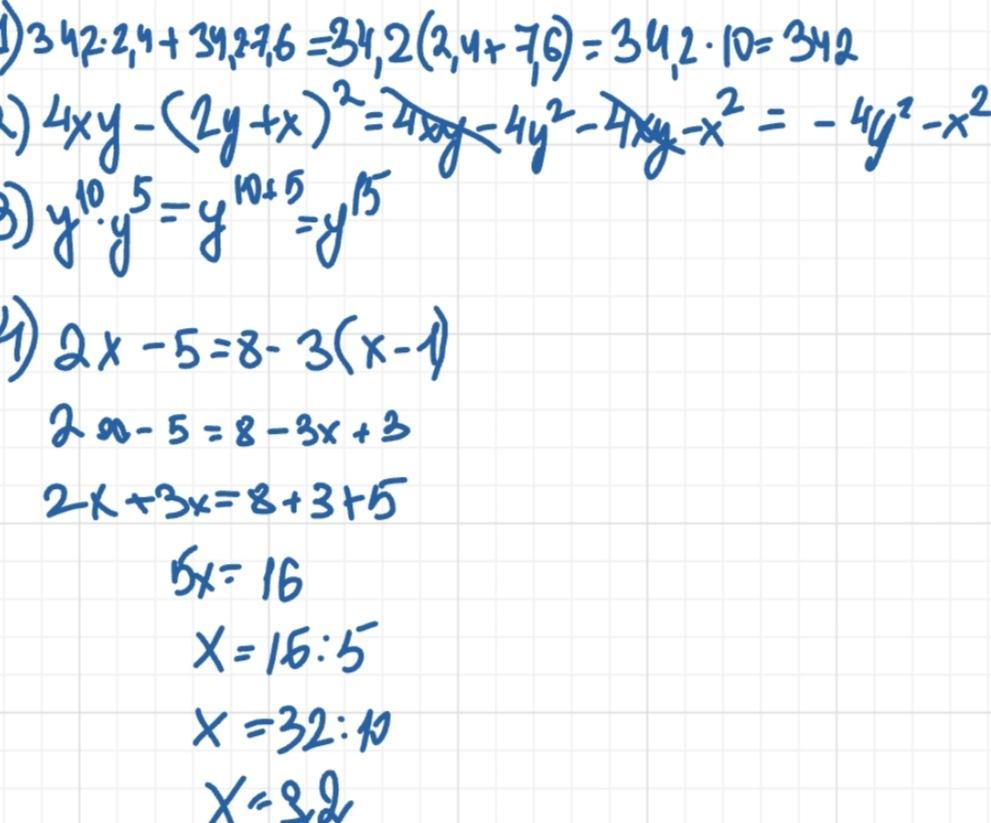 1) 34,2·2,4 + 34,2·7,6 = 34,2(2,4 + 7,6) = 34,2·10 = 342
2) 4xy - (2y + x)² = 4xy - 4y² - 4xy - x² = - 4y² - x²
3) y¹⁰·y⁵ = y¹⁰⁺⁵ = y¹⁵
4) 2x - 5 = 8 - 3(x - 1)
2x - 5 = 8 - 3x + 3
2x + 3x = 8 + 3 + 5
5x = 16
x = 16 : 5
x = 32 : 10
x = 3,2